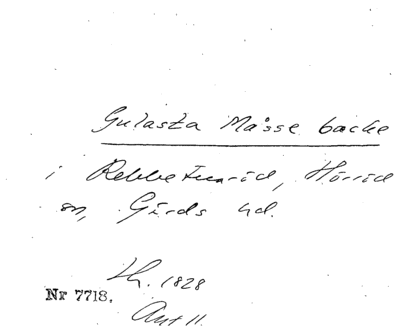 Gulasta Måsse backe
i Rebbetuaröd, Hörröd
sn, Gärds hd.
Lh. 1828
Nr 7718.
Akt 11.